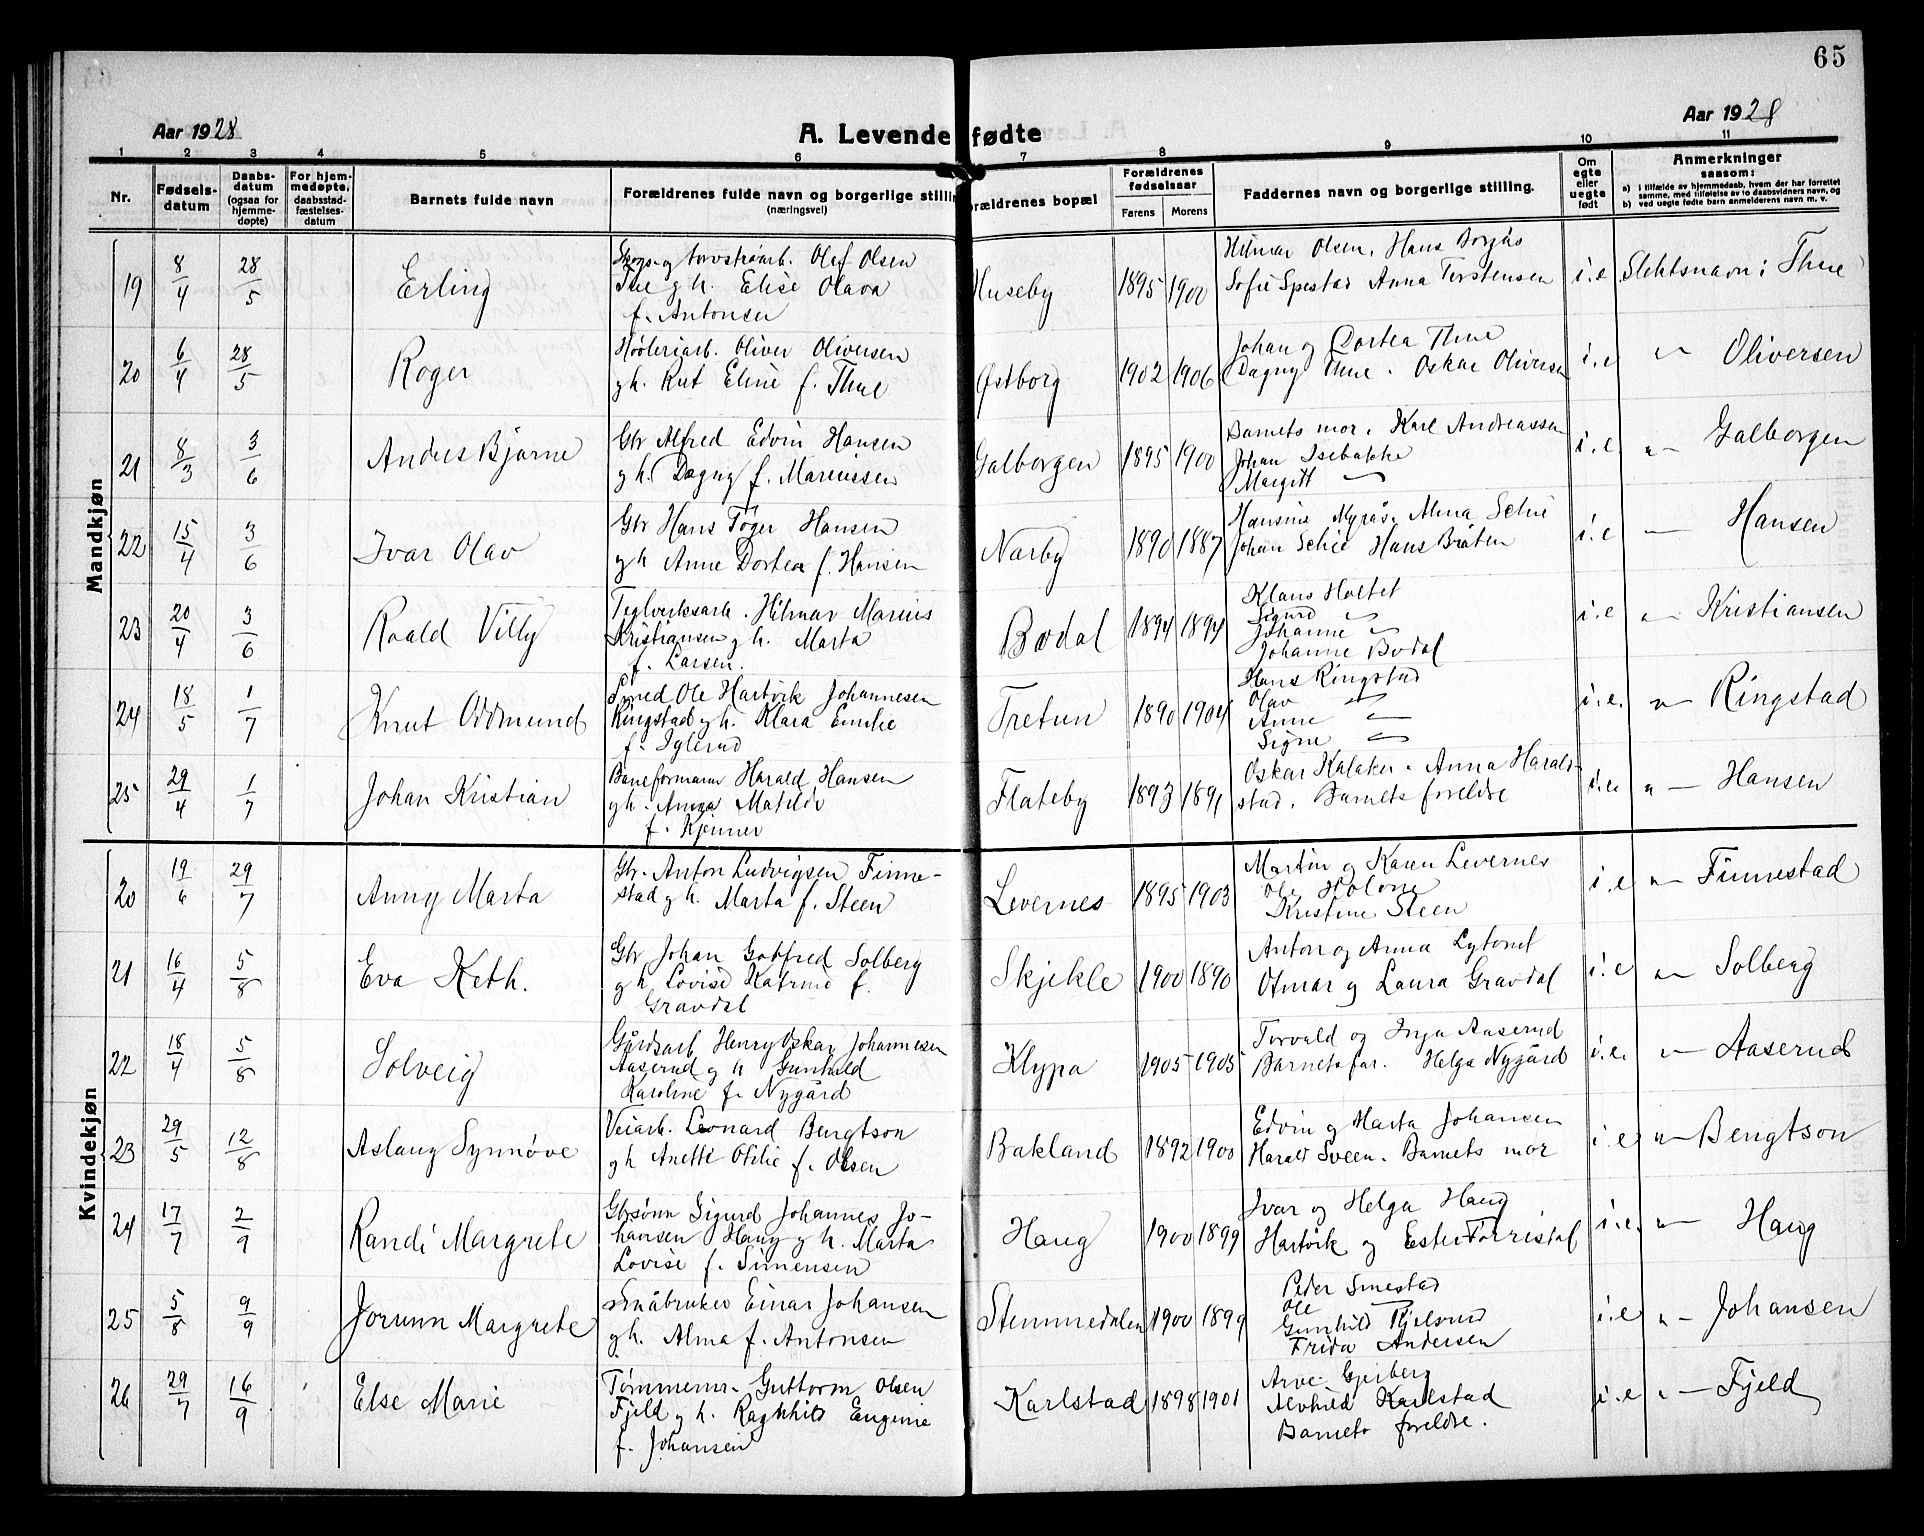 65
Aar 1928
A. Levende fødte
Aar 1928
1 2 3 4 5 6 7 8 9 10 11
Nr.
Fødsels-
datum
Daabs-
datum
(ogsaa for
hjemme-
døpte)
For hjem-
medøpte,
daabsstad-
fæstelses-
datum
Barnets fulde navn
Forældrenes fulde navn og borgerlige stilling
(næringsvei)
orældrenes bopæl
Forældrenes
fødselsaar
Farens Morens
Faddernes navn og borgerlige stilling.
Om
egte
eller
uegte
født
Anmerkninger
saasom:
a) i tilfælde av hjemmedaab, hvem der har forrettet
samme, med tilføielse av to daabsvidners navn, og
b) ved uegte fødte barn anmelderens navn m. v.
Mandkjøn
19 8/4 28/5 Erling
Skogs- og torvstrøarb. Olef Olsen
Thue g h. Elise Olava
f. Antonsen
Huseby 1895 1900
Hilmar Olsen, Hans Borgås
Sofie Spestad Anna Torstensen
i.e Slektsnavn: Thue
20 6/4 28/5 Roger
Høvleriarb. Oliver Oliversen
g h. Rut Eline f. Thue
Østborg 1902 1906
Johan og Dortea Thue
Dagny Thue. Oskar Oliversen
i.e " — Oliversen
21 8/3 3/6 Anders Bjarne
Gbr Alfred Edvin Hansen
g h. Dagny f. Mareussen
Galborgen 1895 1900
Barnets mor. Karl Andreassen
Johan Isebakke
Margitt "
i.e. " — Galborgen
22 15/4 3/6 Ivar Olav
Gbr Hans Tøger Hansen
g h Anne Dortea f. Hansen
Narby 1890 1887
Hansine Myrås, Alma Schie
Johan Schie Hans Bråten
i.e — Hansen
23 20/4 3/6 Roald Villy
Teglverksarb. Hilmar Marius
Kristiansen g h. Marta
f. Larsen.
Bodal 1894 1894
Klaus Holtet
Sigurd "
Johanne "
Johanne Bodal
i.e " — Kristiansen
24 18/5 1/7 Knut Oddmund
Smed Ole Hartvik Johannesen
Ringstad g h. Klara Emilie
f. Iglerud
Tretun 1890 1904
Hans Ringstad
Olav "
Anne "
Signe "
i.e. " — Ringstad
25 29/4 1/7 Johan Kristian
Baneformann Harald Hansen
g h. Anna Matilde
f. Kjenner
Flateby 1893 1891
Oskar Kalaker. Anna Harald-
stad. Barnets foreldre
i.e. " — Hansen
Kvindekjøn
20 19/6 29/7 Anny Marta
Gbr. Anton Ludvigsen Finne-
stad g h. Marta f. Steen
Levernes 1895 1903
Martin og Karen Levernes
Ole Holone
Kristine Steen
i.e " — Finnestad
21 16/4 5/8 Eva Keth.
Gbr Johan Gotfred Solberg
g h Lovise Katrine f.
Gravdal
Skjekle 1900 1890
Anton og Anna Lytomt
Otmar g Laura Gravdal
i.e " — Solberg
22 18/4 5/8 Solveig
Gårdsarb Henry Oskar Johannesen
Aaserud g h Gunhild
Karoline f. Nygård
Klypa 1905 1905
Torvald og Inga Aaserud
Barnets far. Helga Nygård
i.e. " — Aaserud
23 29/5 12/8 Aslaug Synnøve
Veiarb. Leonard Bengtson
g h Anette Otilie f. Olsen
Bakland 1892 1900
Edvin g Marta Johansen
Harald Sveen. Barnets mor
i.e " — Bengtson
24 17/7 2/9 Randi Margrete
Gbrsønn Sigurd Johannes Jo-
hansen Haug g h. Marta
Lovise f. Simensen
Haug 1900 1899
Ivar og Helga Haug
Hartvik og Ester Torristal
i.e. " — Haug
25 5/8 9/9 Jorunn Margrete
Småbruker Einar Johansen
g h. Alma f. Antonsen
Stemmedalen 1900 1899
Peder Smestad
Ole —
Gunhild Kjelsrud
Frida Andersen
i.e " — Johansen
26 29/7 16/9 Else Marie
Tømmerm. Guttorm Olsen
Fjeld g h. Ragnhild Eugenie
f. Johansen
Karlstad 1898 1901
Arve Gjeiberg
Alvhild Karlstad
Barnets foreldre.
i.e " — Fjeld